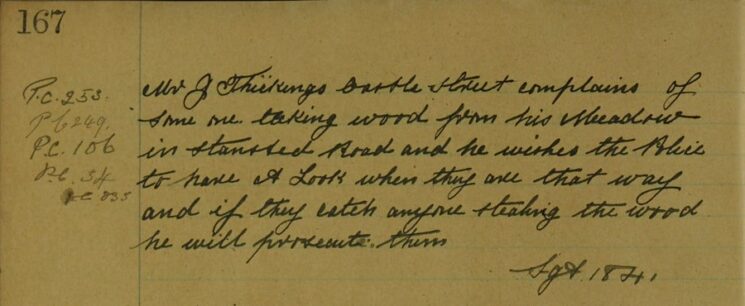 167
P.C. 253.
P.C. 249.
P.C. 106
P.C. 34
P.C. 835
Mr J Thickings Castle Street complains of
some one taking wood from his Meadow
in Stansted Road and he wishes the Police
to have A Look when they are that way
and if they catch anyone stealing the wood
he will prosecute them
Sgt. 18